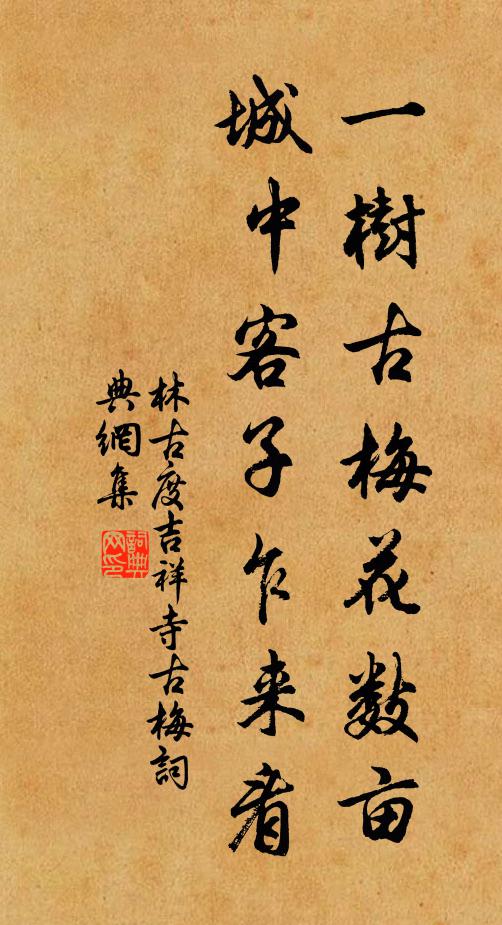 一樹古梅花数亩
城中客子乍来看
林古度吉祥寺古梅詞
典網集
詞典网印